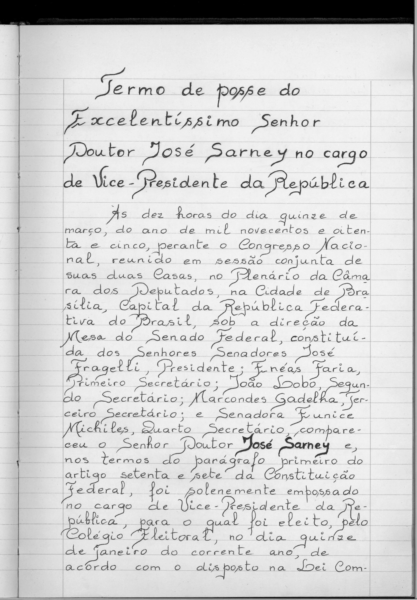 Termo de posse do
Excelentíssimo Senhor
Doutor José Sarney no cargo
de Vice-Presidente da República
Às dez horas do dia quinze de
março, do ano de mil novecentos e oiten-
ta e cinco, perante o Congresso Nacio-
nal, reunido em sessão conjunta de
suas duas Casas, no Plenário da Câma
ra dos Deputados, na Cidade de Bra
sília, Capital da República Federa-
tiva do Brasil, sob a direção da
Mesa do Senado Federal, constituí-
da dos Senhores Senadores José
Fragelli, Presidente; Enéas Faria,
Primeiro Secretário; João Lobo, Segun-
do Secretário; Marcondes Gadelha, Ter-
ceiro Secretário; e Senadora Eunice
Michiles, Quarto Secretário, compare-
ceu o Senhor Doutor José Sarney e,
nos termos do parágrafo primeiro do
artigo setenta e sete da Constituição
Federal, foi solenemente empossado
no cargo de Vice-Presidente da Re-
pública, para o qual foi eleito, pelo
Colégio Eleitoral, no dia quinze
de janeiro do corrente ano, de
acôrdo com o disposto na Lei Com-